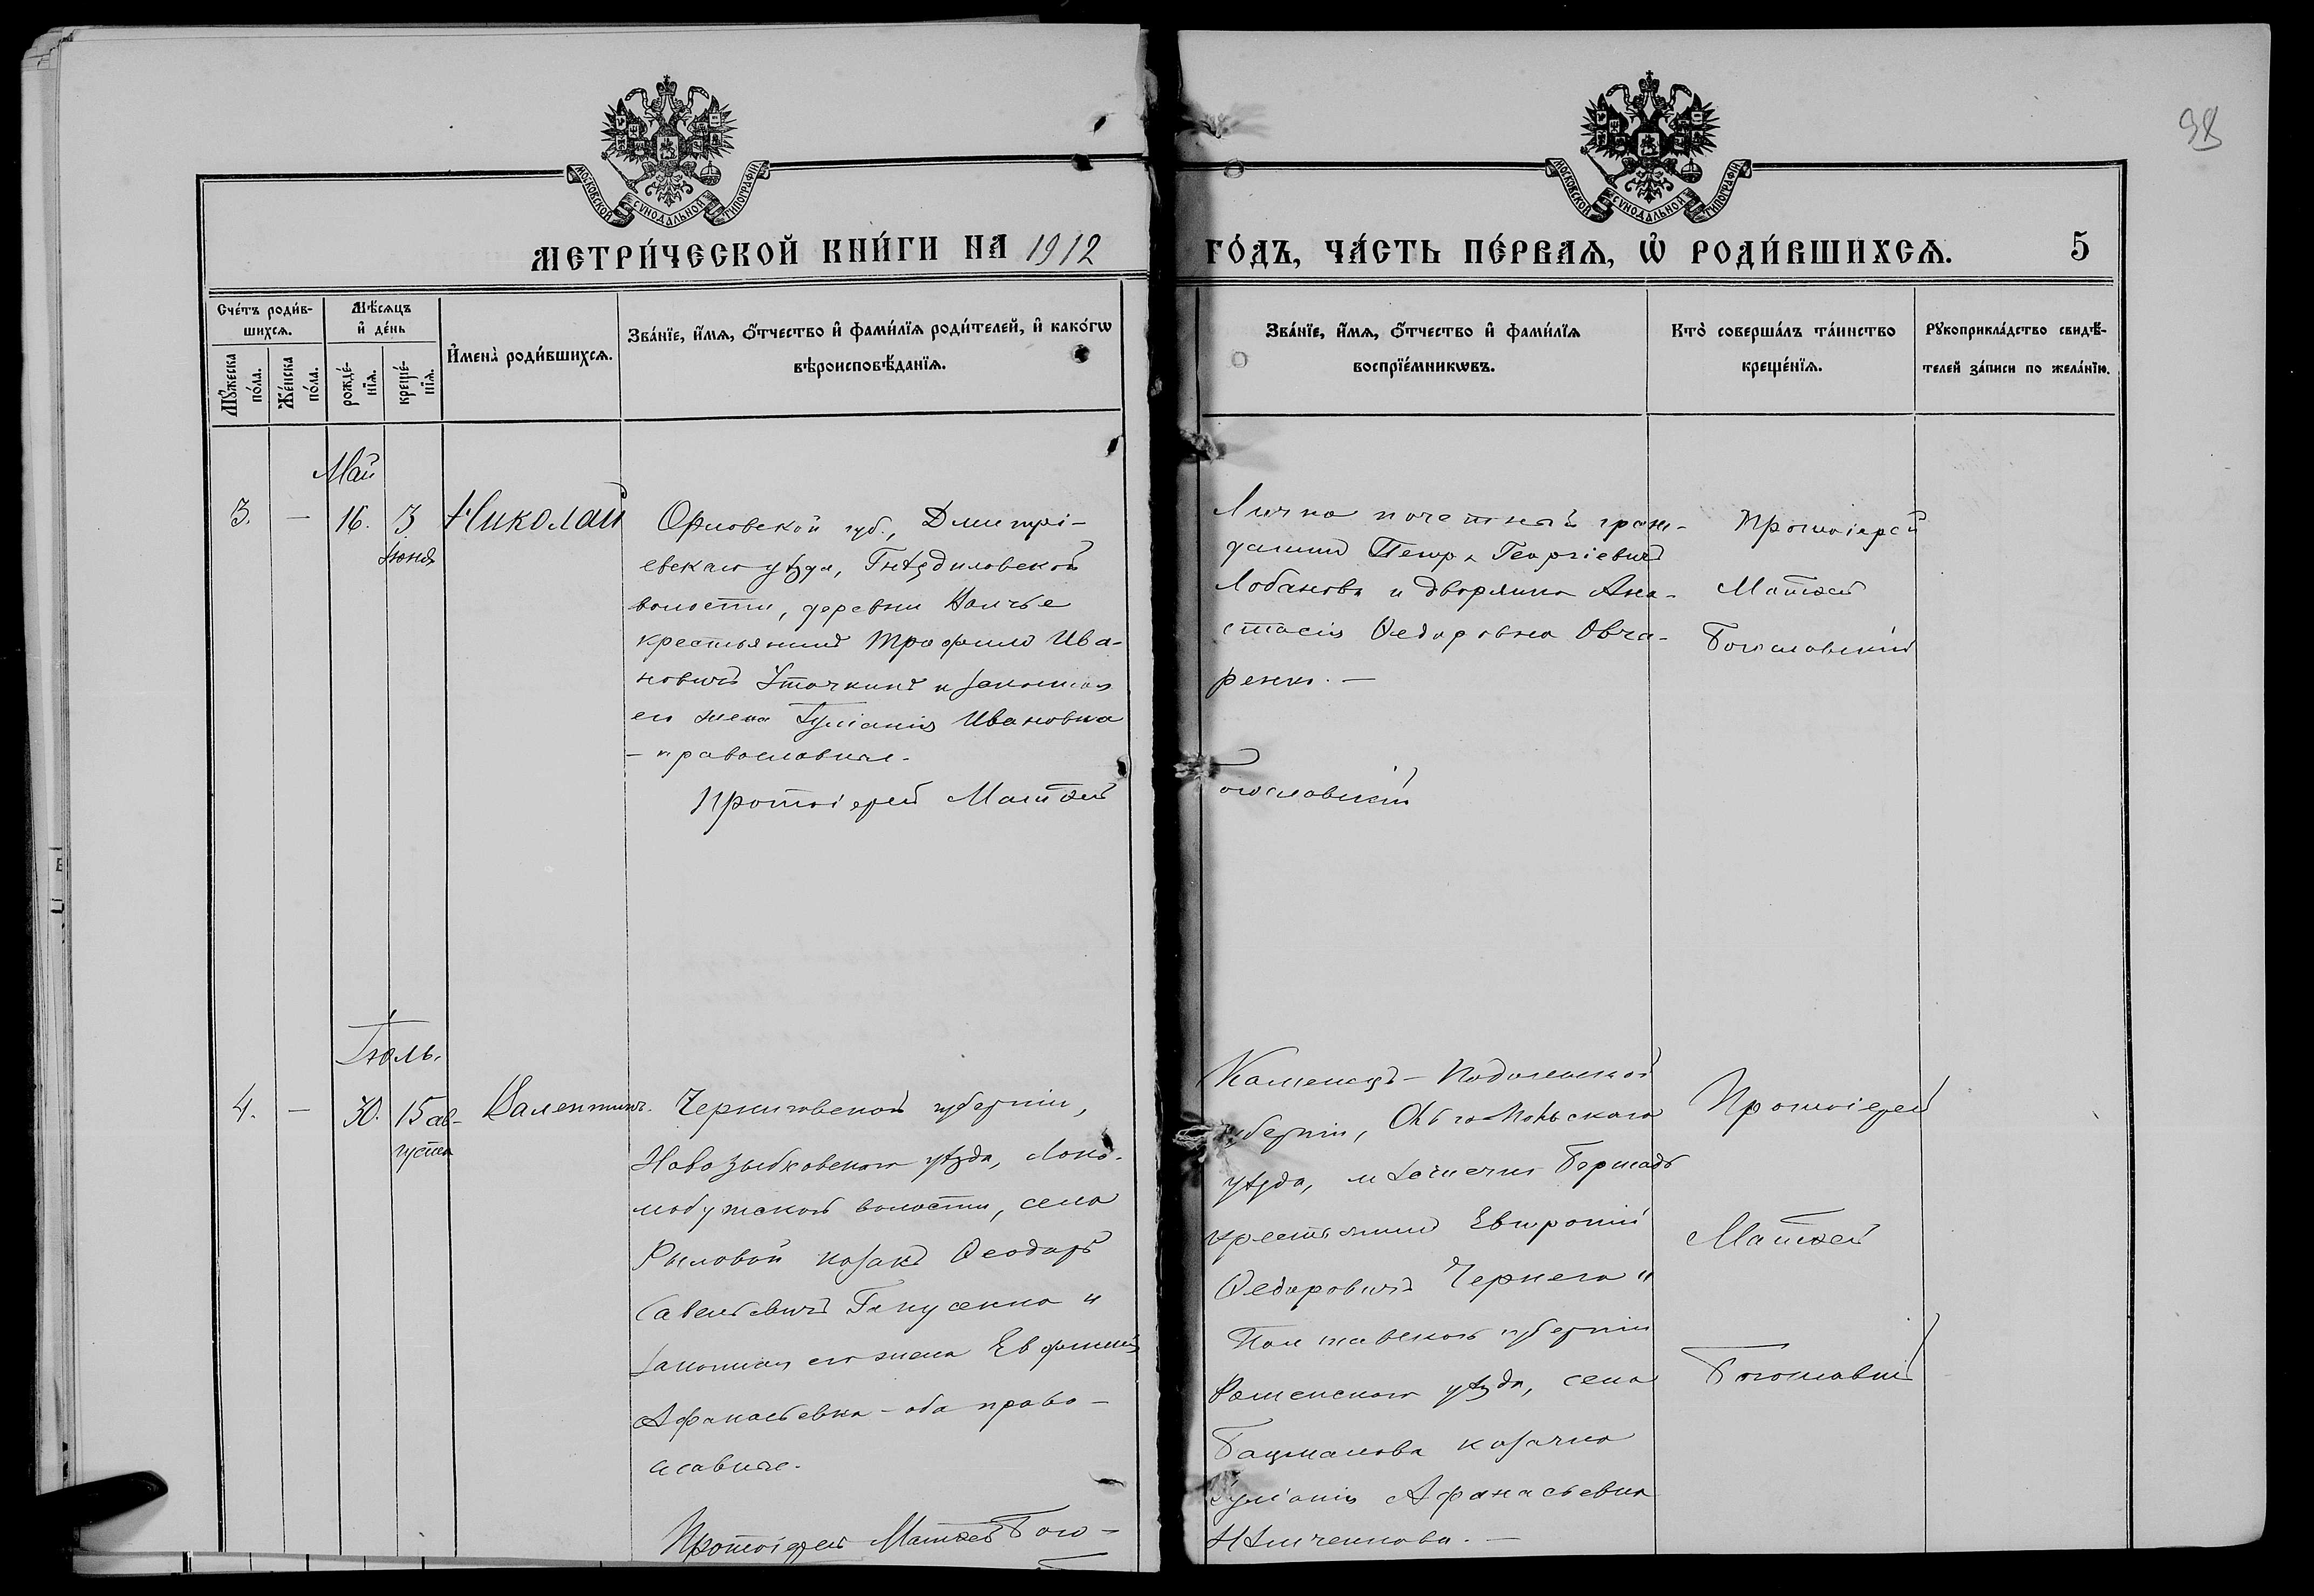 98
МОСКОВСКОЙ СѴНОДАЛЬНОЙ ТИПОГРАФІИ
МОСКОВСКОЙ СѴНОДАЛЬНОЙ ТИПОГРАФІИ
МЕТРИ́ЧЕСКОЙ КНИ́ГИ НА 1912
ГО́ДЪ, ЧА́СТЬ ПЕ́РВАѦ, Ѡ҆ РОДИ́ВШИХСѦ. 5
Сче́тъ роди́в-
шихсѧ.
Мꙋ́жеска
по́ла.
Же́нска
по́ла.
Мѣ́сѧцъ
и҆ де́нь
рожде́-
нїѧ.
креще́-
нїѧ.
И҆мена̀ роди́вшихсѧ.
Зва́нїе, и҆́мѧ, ѻ҆́тчество и҆ фами́лїѧ роди́телей, и҆ како́гѡ
вѣроисповѣ́данїѧ.
Зва́нїе, и҆́мѧ, ѻ҆́тчество и҆ фами́лїѧ
воспрїе́мникѡвъ.
Кто̀ соверша́лъ та́инство
креще́нїѧ.
Рꙋкоприкла́дство свидѣ́-
телей за́писи по жела́нїю.
Май
3. — 16. 3
Іюня
Николай
Орловской губ., Дмитрі-
евскаго уѣзда, Гнѣздиловской
волости, деревни Волчье
крестьянинъ Трофимъ Ива-
новичъ Уточкинъ и законная
его жена Іуліанія Ивановна
— православные.
Протоіерей Матѳей
Лично почетный граж-
данинъ Петръ Георгіевичъ
Лобановъ и дворянка Ана-
стасія Ѳедоровна Овча-
ренко. —
Богословскій
Протоіерей
Матѳей
Богословскій
Іюль.
4. — 30. 15 ав-
густа
Валентинъ.
Черниговской губерніи,
Новозыбковскаго уѣзда,
волости, села
козакъ Ѳеодоръ
Савельевичъ и
законная его жена Евфимія
Афанасьевна — оба право-
славные.
Протоіерей Матѳей Бого-
Каменецъ-Подольской
губерніи, Ольгопольскаго
уѣзда, мѣстечка Бершадь
крестьянинъ
Ѳедоровичъ Чернега и
Полтавской губерніи
Роменскаго уѣзда, села
Бацманова козачка
Іуліанія Афанасьевна
Протоіерей
Матѳей
Богословскій